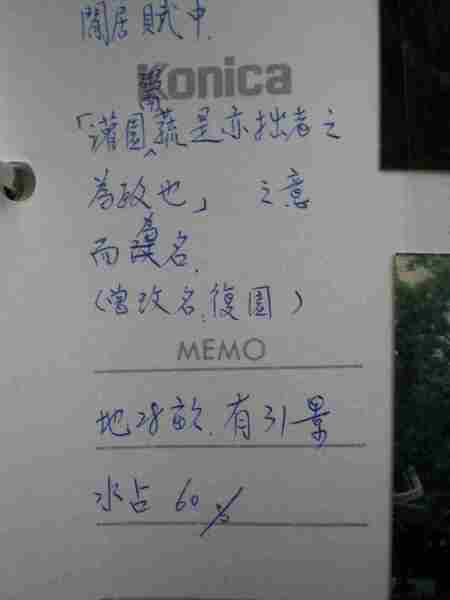 閒居賦中.
Konica
「灌園鬻蔬是亦拙者之
為政也」 之意
而為名.
(曾改名.復園)
MEMO
地28畝.有引景
水占60%